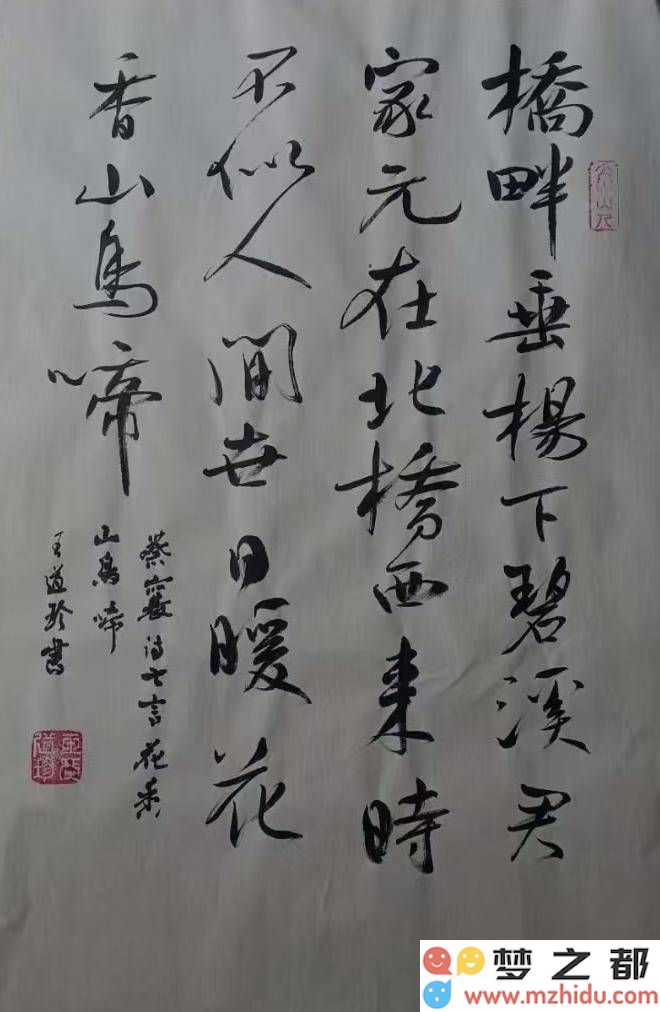 橋畔垂楊下碧溪君
家元在北橋西來時
不似人間世日暖花
香山鳥啼
蔡襄詩七言花香
山鳥啼
王道珍書
梦之都
www.mzhidu.com